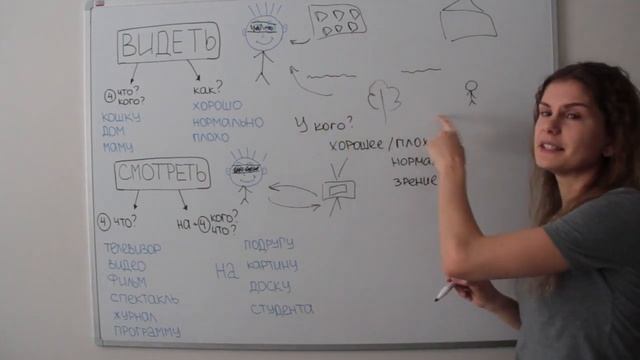 ВИДЕТЬ
④ что?
кого?
как?
кошку
дом
маму
хорошо
нормально
плохо
У кого?
хорошее/плох
норма
зрение
СМОТРЕТЬ
④ что?
на+④ кого?
что?
телевизор
видео
фильм
спектакль
журнал
программу
на
подругу
картину
доску
студента